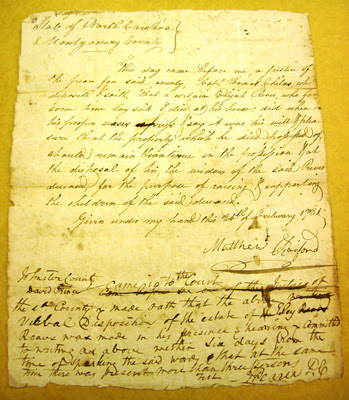 State of North Carolina
Montgomery County
This day came before me, a Justice of
the peace for said County Capt Thomas Childs who
deposeth & saith, that a certain Elijah Reves who
some time day said & died at his house; did when in
his proper & say it was his will & plea
sure that the property which he died possessed of
should remain & continue in the possession & at
the disposal of his the widow of the said Reves
deceased for the purpose of raising & supporting
the children of the said deceased.
Given under my hand this
Matthew
Johnston County
David came into Court
the sd County & made oath that the above
Verbal Disposition of the estate of
Reaves was made in his presence & hearing & committed
to writing as above within six days from the
time of speaking the said words, & that at the same
time there was present more than three person
Test